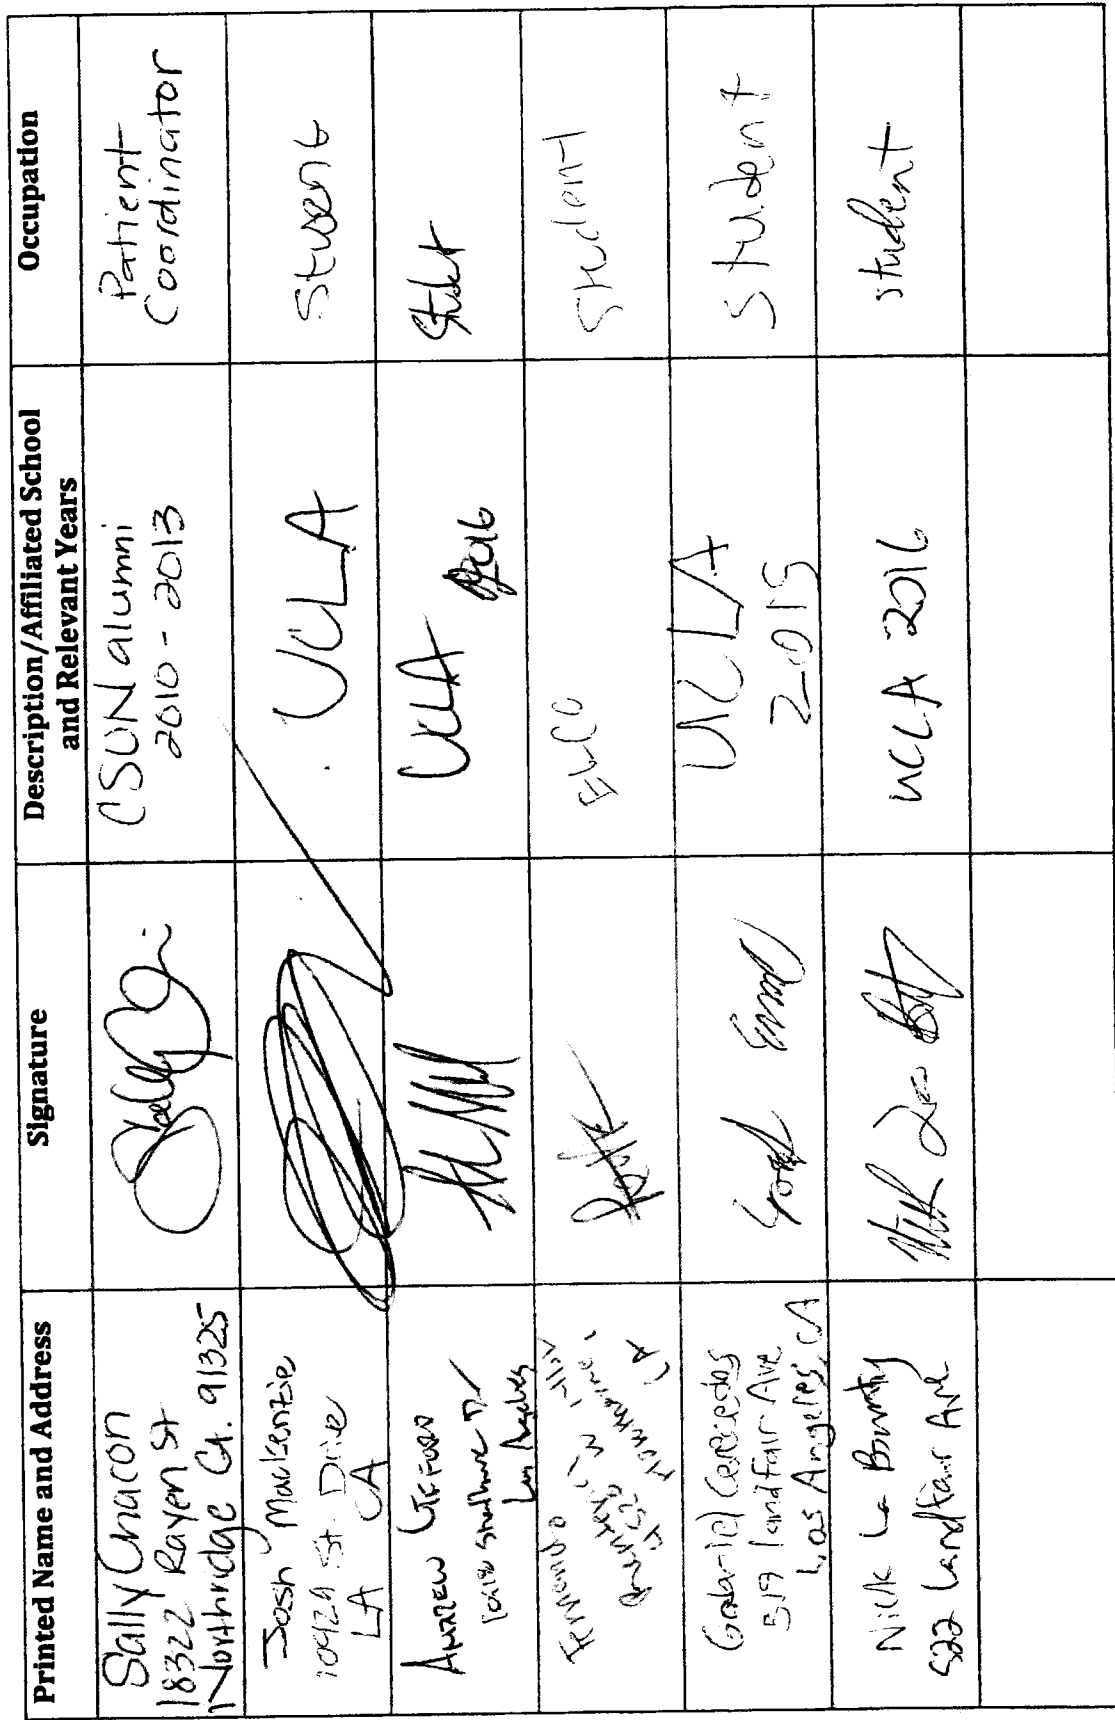 Printed Name and Address
Signature
Description/Affiliated School
and Relevant Years
Occupation
Sally Chacon
18322 Rayen St
Northridge CA. 91325
CSUN alumni
2010 - 2013
Patient
Coordinator
Josh Mackenzie
10929 St. Drive
LA CA
UCLA
Student
Andrew Gifford
Los Angeles
UCLA 2016
Student
Fernando
CA
Student
Gabriel
519 landfair Ave
Los Angeles, CA
UCLA
2015
Student
Nick La Bounty
522 Landfair Ave
UCLA 2016
student